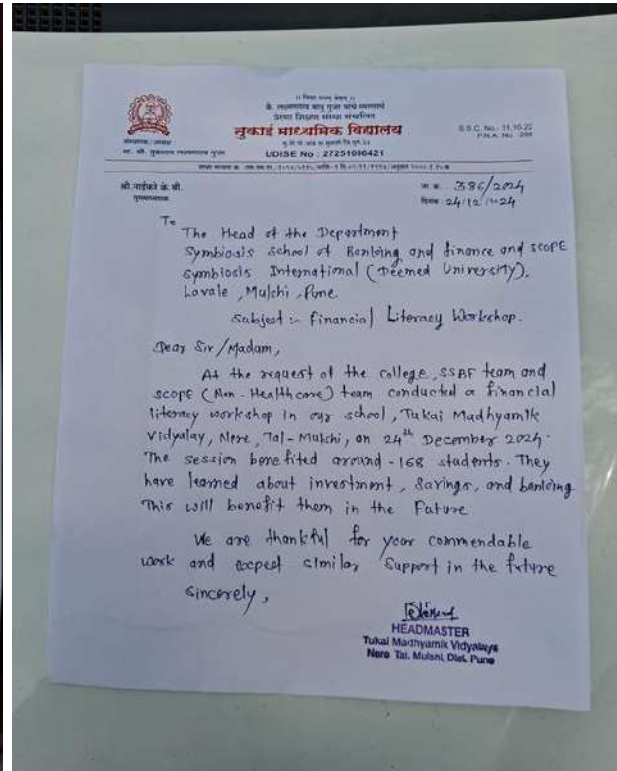 कै. लक्ष्मणराव बापू गुजर यांचे स्मरणार्थ
प्रेरणा शिक्षण संस्था संचलित
तुकाई माध्यमिक विद्यालय
S.S.C. No - 11.10.22
UDISE No : 27251096421
श्री. नाईकरे के. बी.
मुख्याध्यापक
जा. क्र. 386/2024
दिनांक 24/12/2024
To
The Head of the Department
Symbiosis School of Banking and finance and SCOPE
Symbiosis International (Deemed University),
Lavale, Mulshi, Pune
Subject :- Financial Literacy Workshop.
Dear Sir/Madam,
At the request of the college, SSBF team and
SCOPE (Non-Healthcare) team conducted a financial
literacy workshop in our school, Tukai Madhyamik
Vidyalay, Nere, Tal-Mulshi, on 24th December 2024.
The session benefited around-168 students. They
have learned about investment, savings, and banking
This will benefit them in the Future
We are thankful for your commendable
work and expect similar support in the future
Sincerely,
HEADMASTER
Tukai Madhyamik Vidyalaya
Nere Tal. Mulshi, Dist. Pune